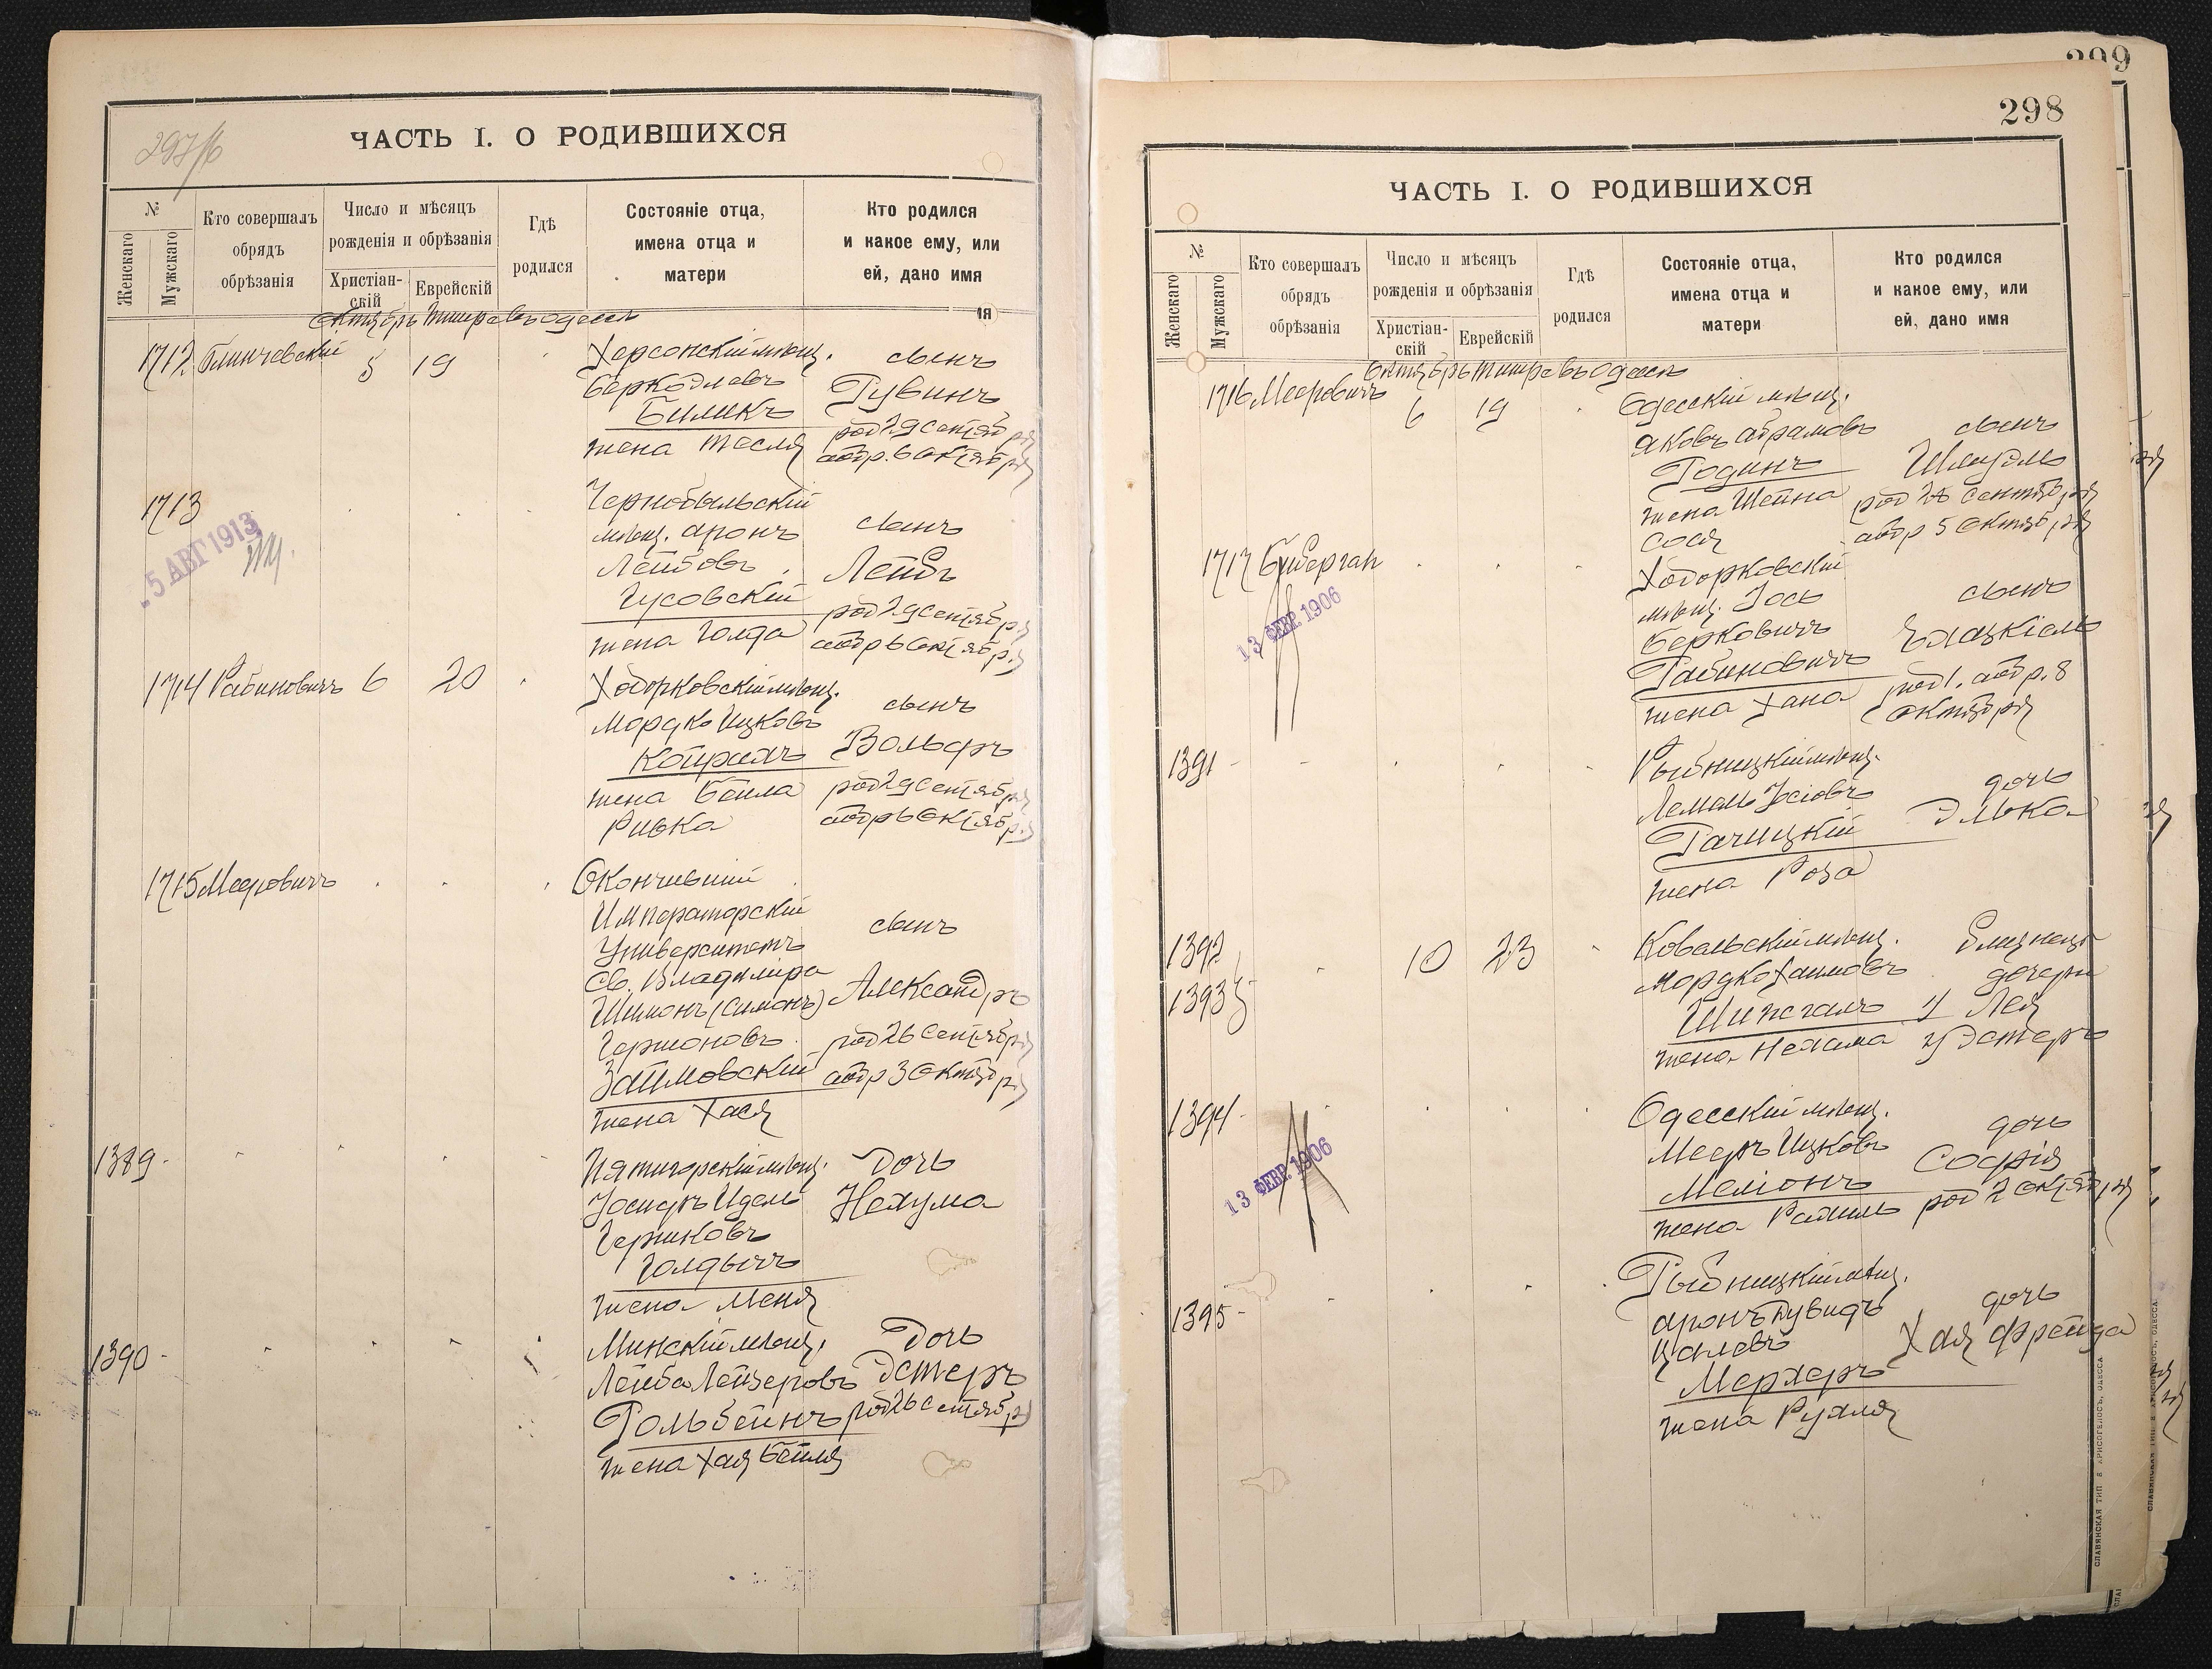 297/б
ЧАСТЬ I. О РОДИВШИХСЯ
№
Женскаго
Мужскаго
Кто совершалъ
обрядъ
обрѣзанія
Число и мѣсяцъ
рожденія и обрѣзанія
Христіан-
скій
Еврейскій
Гдѣ
родился
Состояніе отца,
имена отца и
матери
Кто родился
и какое ему, или
ей, дано имя
Октябрь Тишре въ Одессѣ
ія
1712 5 19 Херсонскій мѣщ. сынъ
Рувинъ
Биликъ
род 29 сентября
жена Тесля
обр. 6 октября
1713 Чернобыльскій
мѣщ. Аронъ сынъ
Лейбовъ Лейбъ
Гусовскій
род 29 сентября
жена Голда обр 6 октября
5 АВГ 1913
1714 Рабиновичъ 6 20 Ходорковскій мѣщ. сынъ
Мордко Ицковъ Вольфъ
жена Бейла род 29 сентября
Ривка обр 6 октября
1715 Мееровичъ Окончившій
Императорскій
Университетъ сынъ
Св. Владиміра
Шимонъ (Симонъ) Александръ
Гершоновъ род 26 сентября
обр 3 октября
жена Хася
1389 Пятигорскій мѣщ. Дочь
Нехума
жена Меня
1390 Минскій мѣщ. Дочь
Лейба Лейзеровъ Эстеръ
Гольбейнъ род 26 сентября
жена Хая Бейля
299
298
ЧАСТЬ I. О РОДИВШИХСЯ
№
Женскаго
Мужскаго
Кто совершалъ
обрядъ
обрѣзанія
Число и мѣсяцъ
рожденія и обрѣзанія
Христіан-
скій
Еврейскій
Гдѣ
родился
Состояніе отца,
имена отца и
матери
Кто родился
и какое ему, или
ей, дано имя
Октябрь Тишре въ Одессѣ
1716 Мееровичъ 6 19 Одесскій мѣщ.
Яковъ Абрамовъ сынъ
Родинъ Шмуэль
жена Шейна род 28 сентября
Сося обр 5 октября
1717 Ходорковскій
мѣщ. Іось сынъ
Берковичъ Ехацкіель
Рабиновичъ
род 1. обр. 8
жена Хана
октября
13 ФЕВР. 1906
1391 Рыбницкій мѣщ.
дочь
Элька
Рачицкій
жена Роза
1392 10 23 Ковальскій мѣщ. Близнецы
Мордко Хаимовъ дочери
1393 Лея
жена Нехама Эстеръ
1394 Одесскій мѣщ.
Мееръ Ицковъ дочь
Софія
жена Рахиль род 2 октября
13 ФЕВР. 1906
1395 Рыбницкій мѣщ.
Аронъ Дувидъ дочь
Хая Фрейда
Мерхеръ
жена Рухля
СЛАВЯНСКАЯ ТИП. Е. ХРИСОГЕЛОСЪ, ОДЕССА